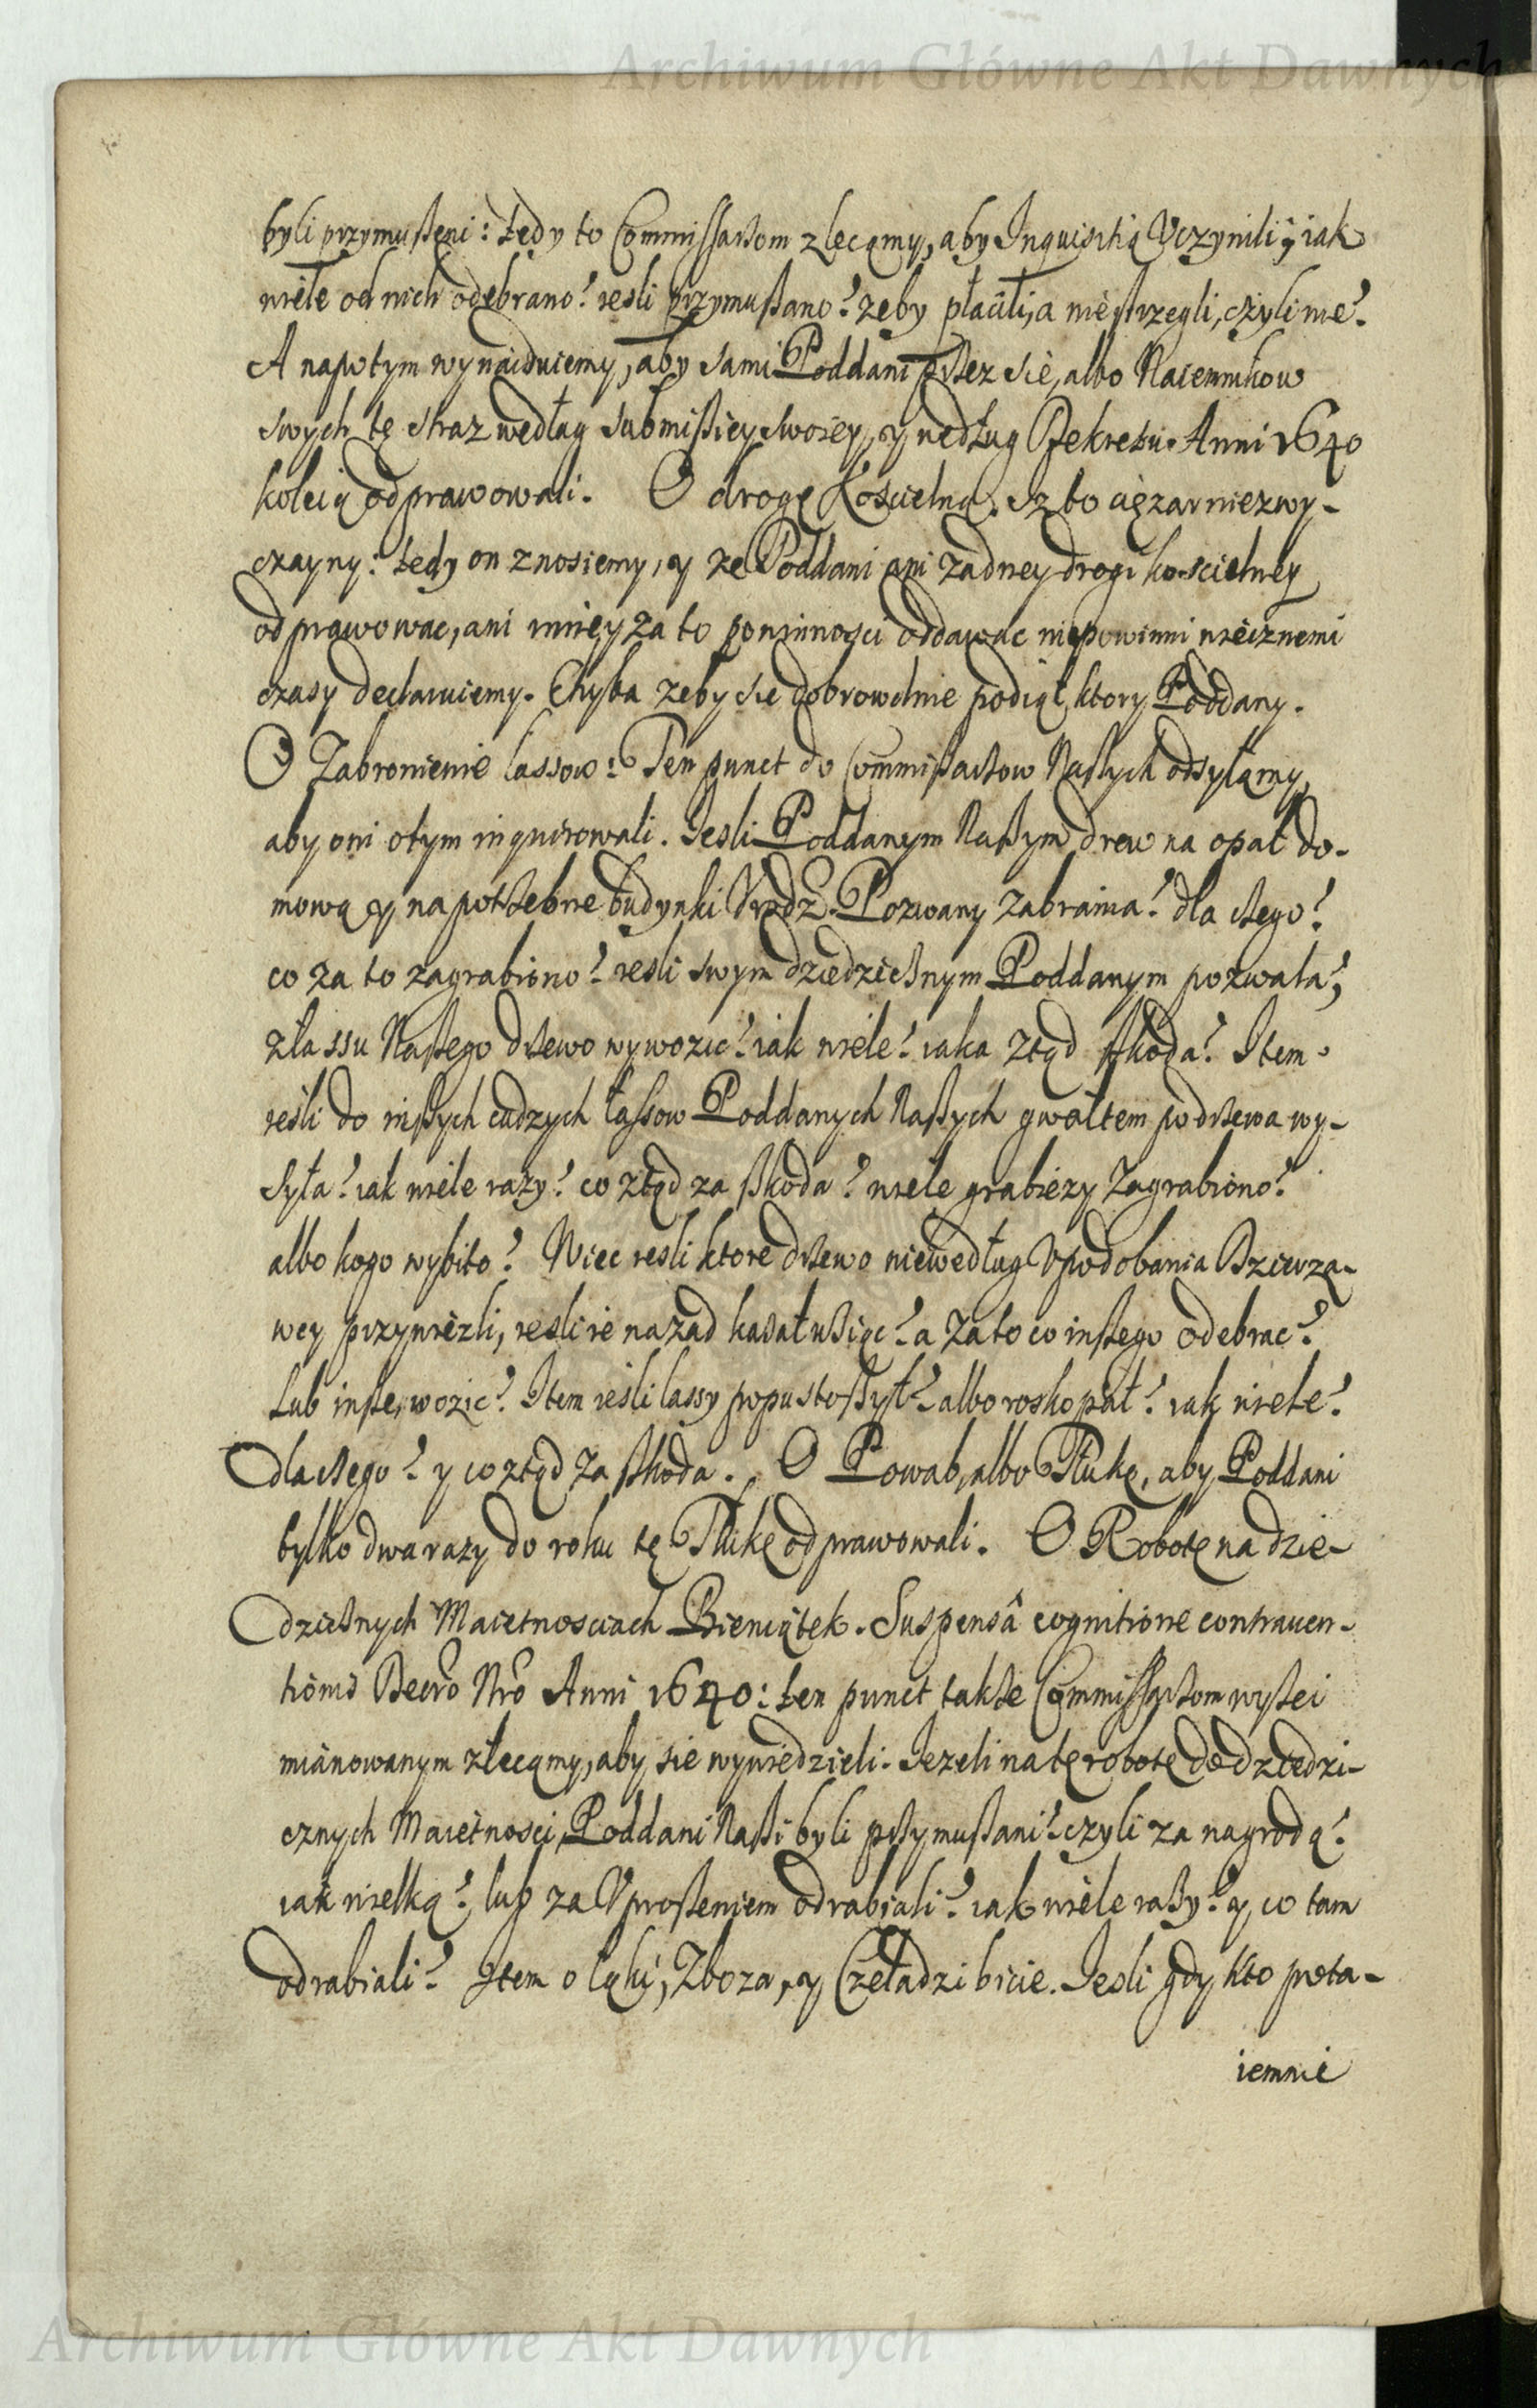 Archiwum Główne Akt Dawnych
byli przymuszeni: tedy to Commissarzom zlecamy, aby Inquisitią Vczynili, iak
wiele od nich odebrano? iesli przymuszano? zeby płacili, a nie strzegli, czyli nie?
A napotym wynaiduiemy, aby sami Poddani przez się, albo Naiemnikow
swych tę straz według submissiey swoiey, y według Dekretu Anni 1640
koleią odprawowali. O drogę Koscielną. Isz to cięzar niezwy-
czayny: tedy on znosiemy, y ze Poddani ani zadney drogi koscielney
odprawowac, ani inszey za to powinnosci oddawac niepowinni wiecznemi
czasy declaruiemy. Chyba zeby się dobrowolnie podiął ktory Poddany.
O Zabronienie lassow: Ten punct do Commissarzow Naszych odsyłamy,
aby oni otym inquirowali. Iesli Poddanym Naszym drew na opał do-
mową y na potrzebne budynki Vrodz. Pozwany zabrania? dla czego?
co za to zagrabiono? iesli swym dziedzicznym Poddanym pozwala,
z lassu Naszego drzewo wywozic? iak wiele? iaka ztąd szkoda? Item
iesli do inszych cudzych lassow Poddanych Naszych gwałtem po drzewa wy-
syła? iak wiele razy? co ztąd za szkoda? wiele grabiezy zagrabiono?
albo kogo wybito? Więc iesli ktore drzewo niewedług Vpodobania Dzierza-
wcy przywiezli, iesli ie nazad kazał wziąc? a za to co inszego odebrac?
Lub insze wozic? Item iesli lassy popustoszył? albo roskopał? iak wiele?
dla czego? y co ztąd za szkoda. O Powab, albo Tłukę, aby Poddani
tylko dwa razy do roku tę Tłukę odprawowali. O Robotę na dzie-
dzicznych Maiętnosciach Bieniątek. Suspensâ cognitione contraven-
tionis Decro Nro Anni 1640: ten punct takze Commissarzom wyszei
mianowanym zlecamy, aby się wywiedzieli. Iezeli na tę robotę do dziedzi-
cznych Maiętnosci, Poddani Naszi byli przymuszani? czyli za nagrodą?
iak wielką? lub za Vproszeniem odrabiali? iak wiele razy? y co tam
odrabiali? Item o łąki, Zboza, y Czeladzi bicie. Iesli gdy kto pota-
iemnie
Archiwum Główne Akt Dawnych